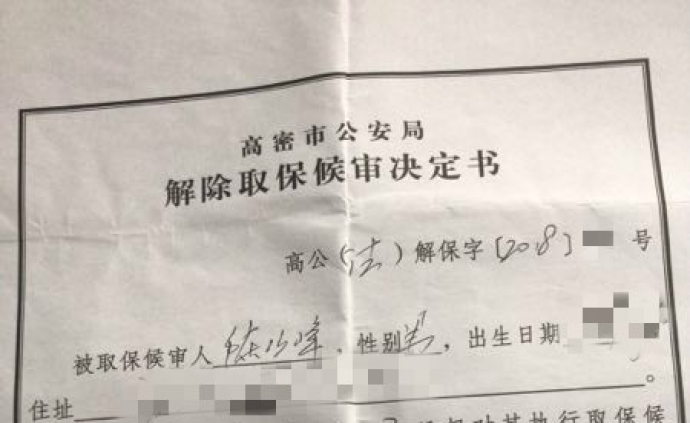 高密市公安局
解除取保候审决定书
高公（法）解保字〔2018〕 号
被取保候审人 峰，性别男，出生日期
住址 。
对其执行取保候